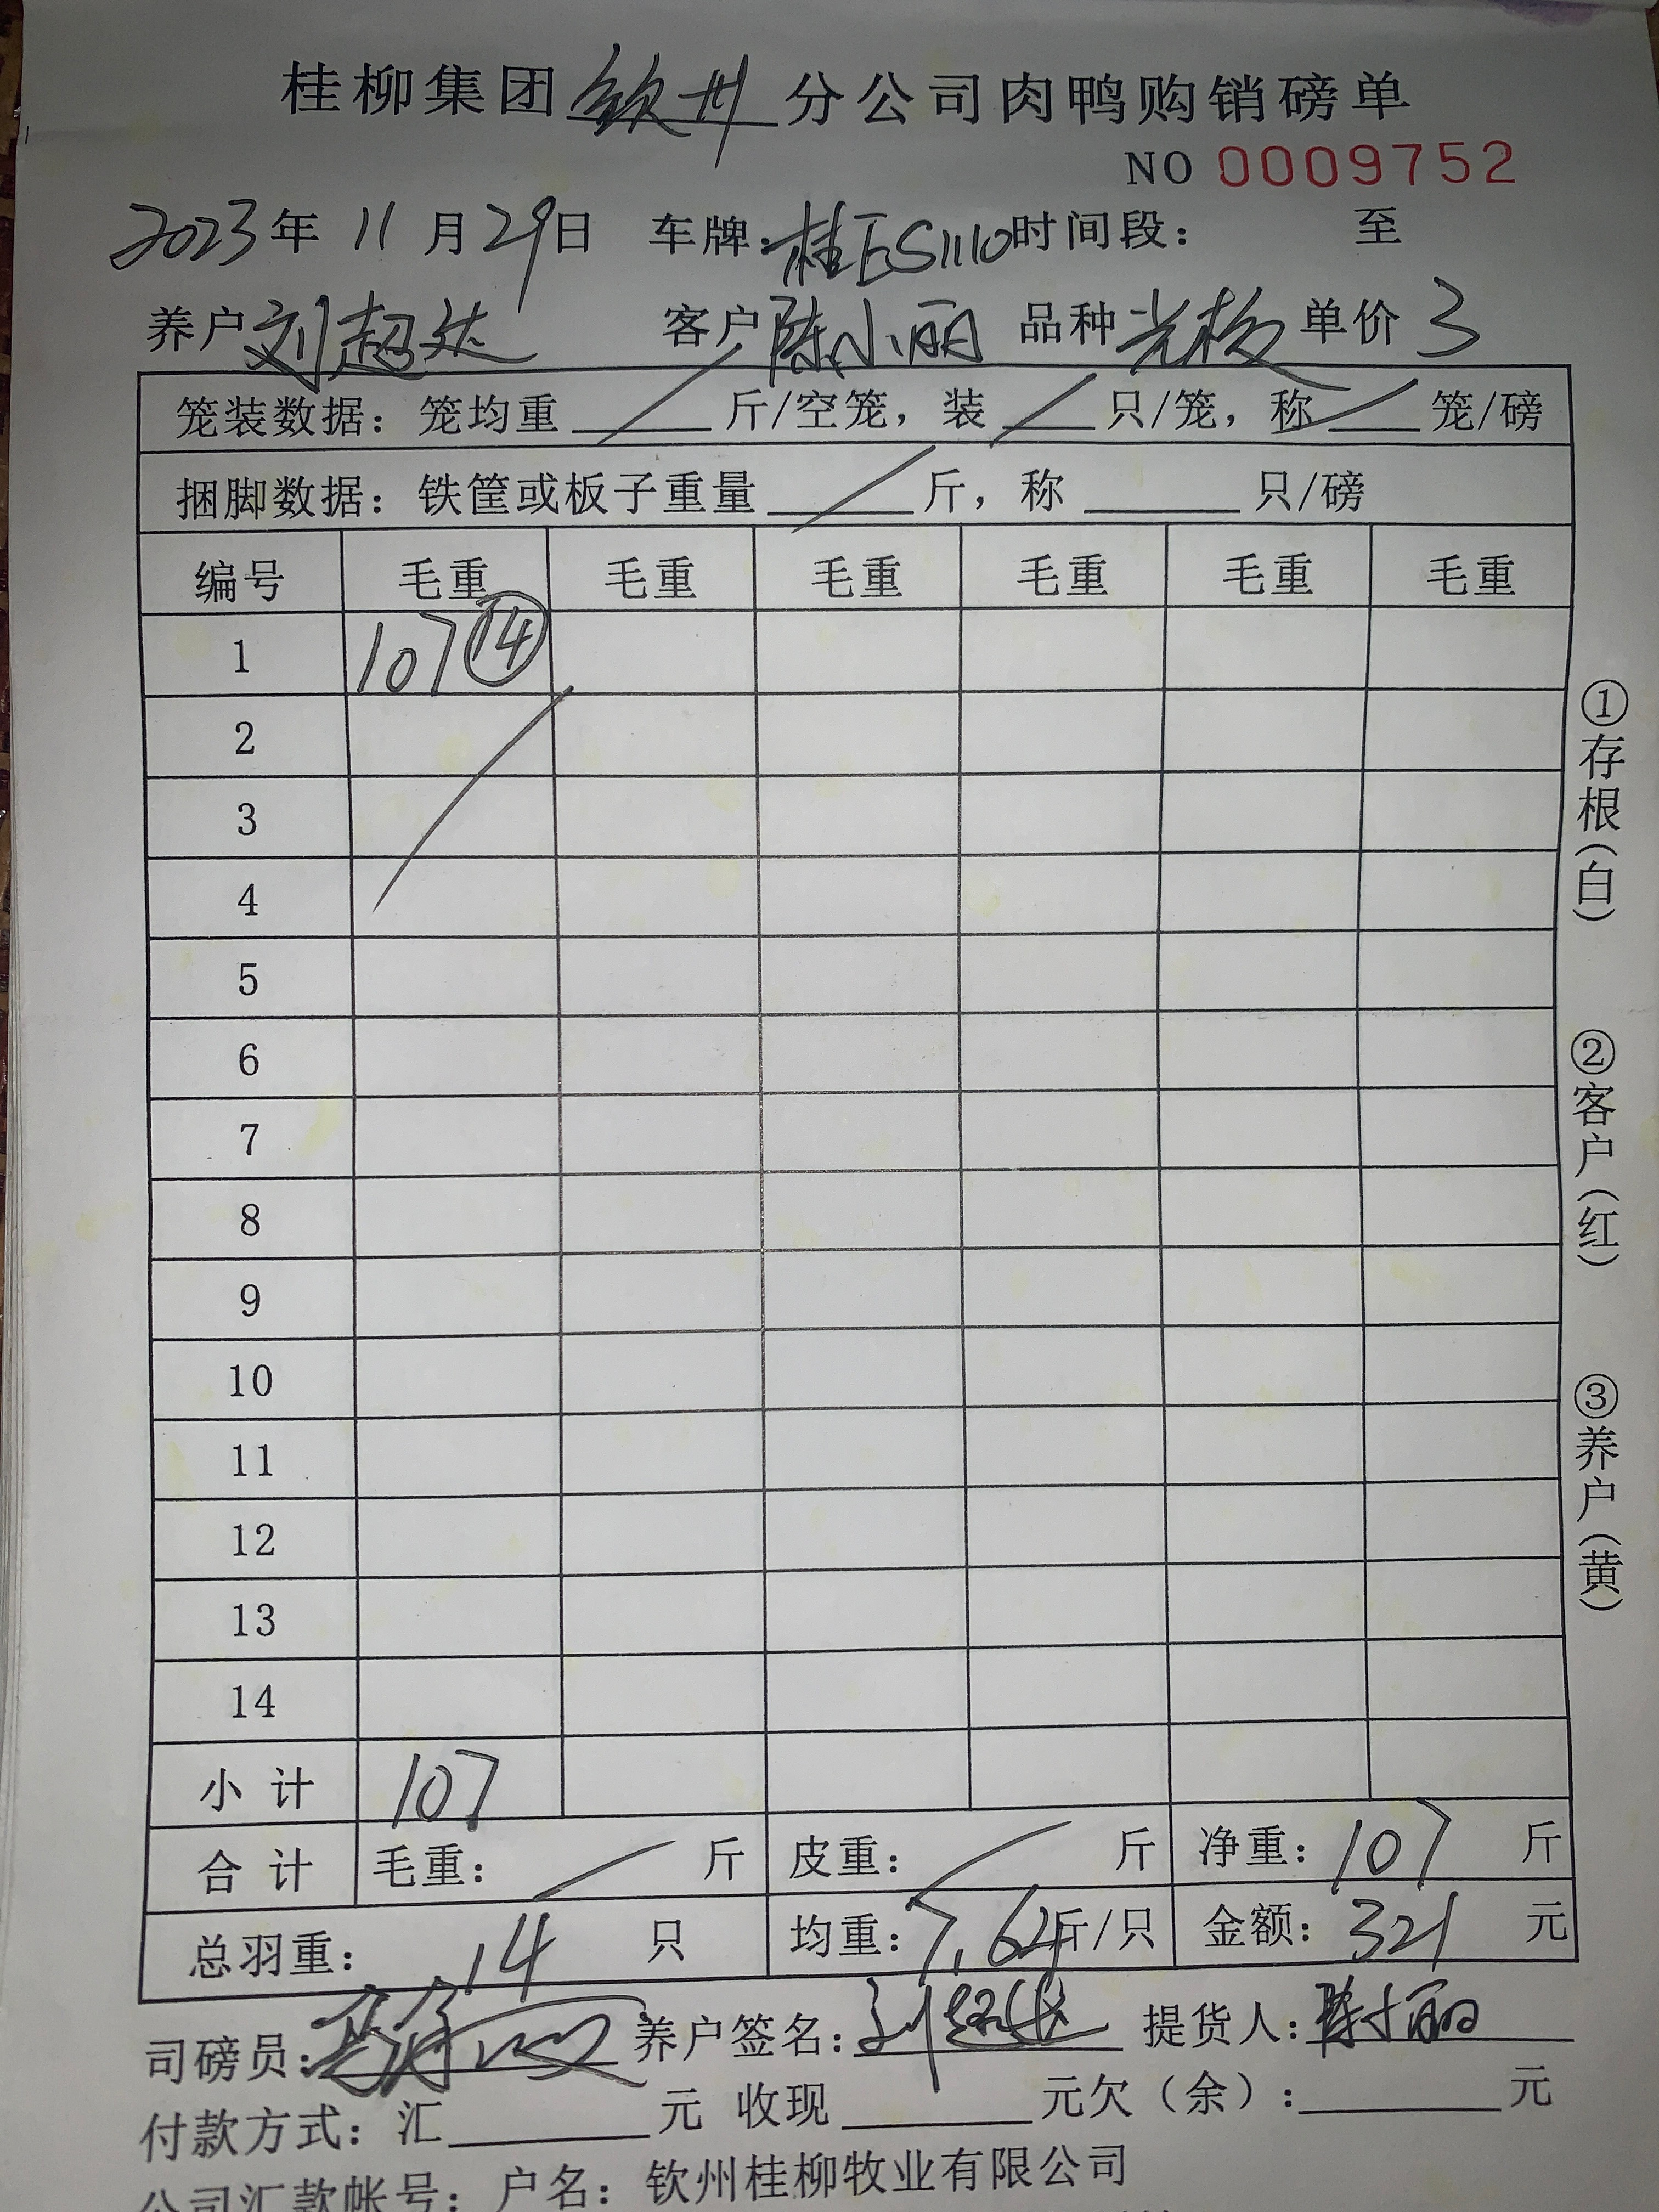 桂柳集团钦州分公司肉鸭购销磅单
NO 0009752
2023年 11 月29日 车牌:桂ES1110时间段: 至
养户刘超达 客户陈小丽 品种 单价 3
笼装数据: 笼均重 斤/空笼, 装 只/笼, 称 笼/磅
捆脚数据: 铁筐或板子重量 斤, 称 只/磅
编号 毛重 毛重 毛重 毛重 毛重 毛重
1 107 ⑭
2
3
4
5
6
7
8
9
10
11
12
13
14
小 计 107
合 计 毛重: 斤 皮重: 斤 净重: 107 斤
总羽重: 14 只 均重: 7.64斤/只 金额: 321 元
司磅员: 养户签名: 刘超达 提货人: 陈小丽
付款方式: 汇 元 收现 元欠(余): 元
公司汇款帐号: 户名: 钦州桂柳牧业有限公司
①存根(白)
②客户(红)
③养户(黄)